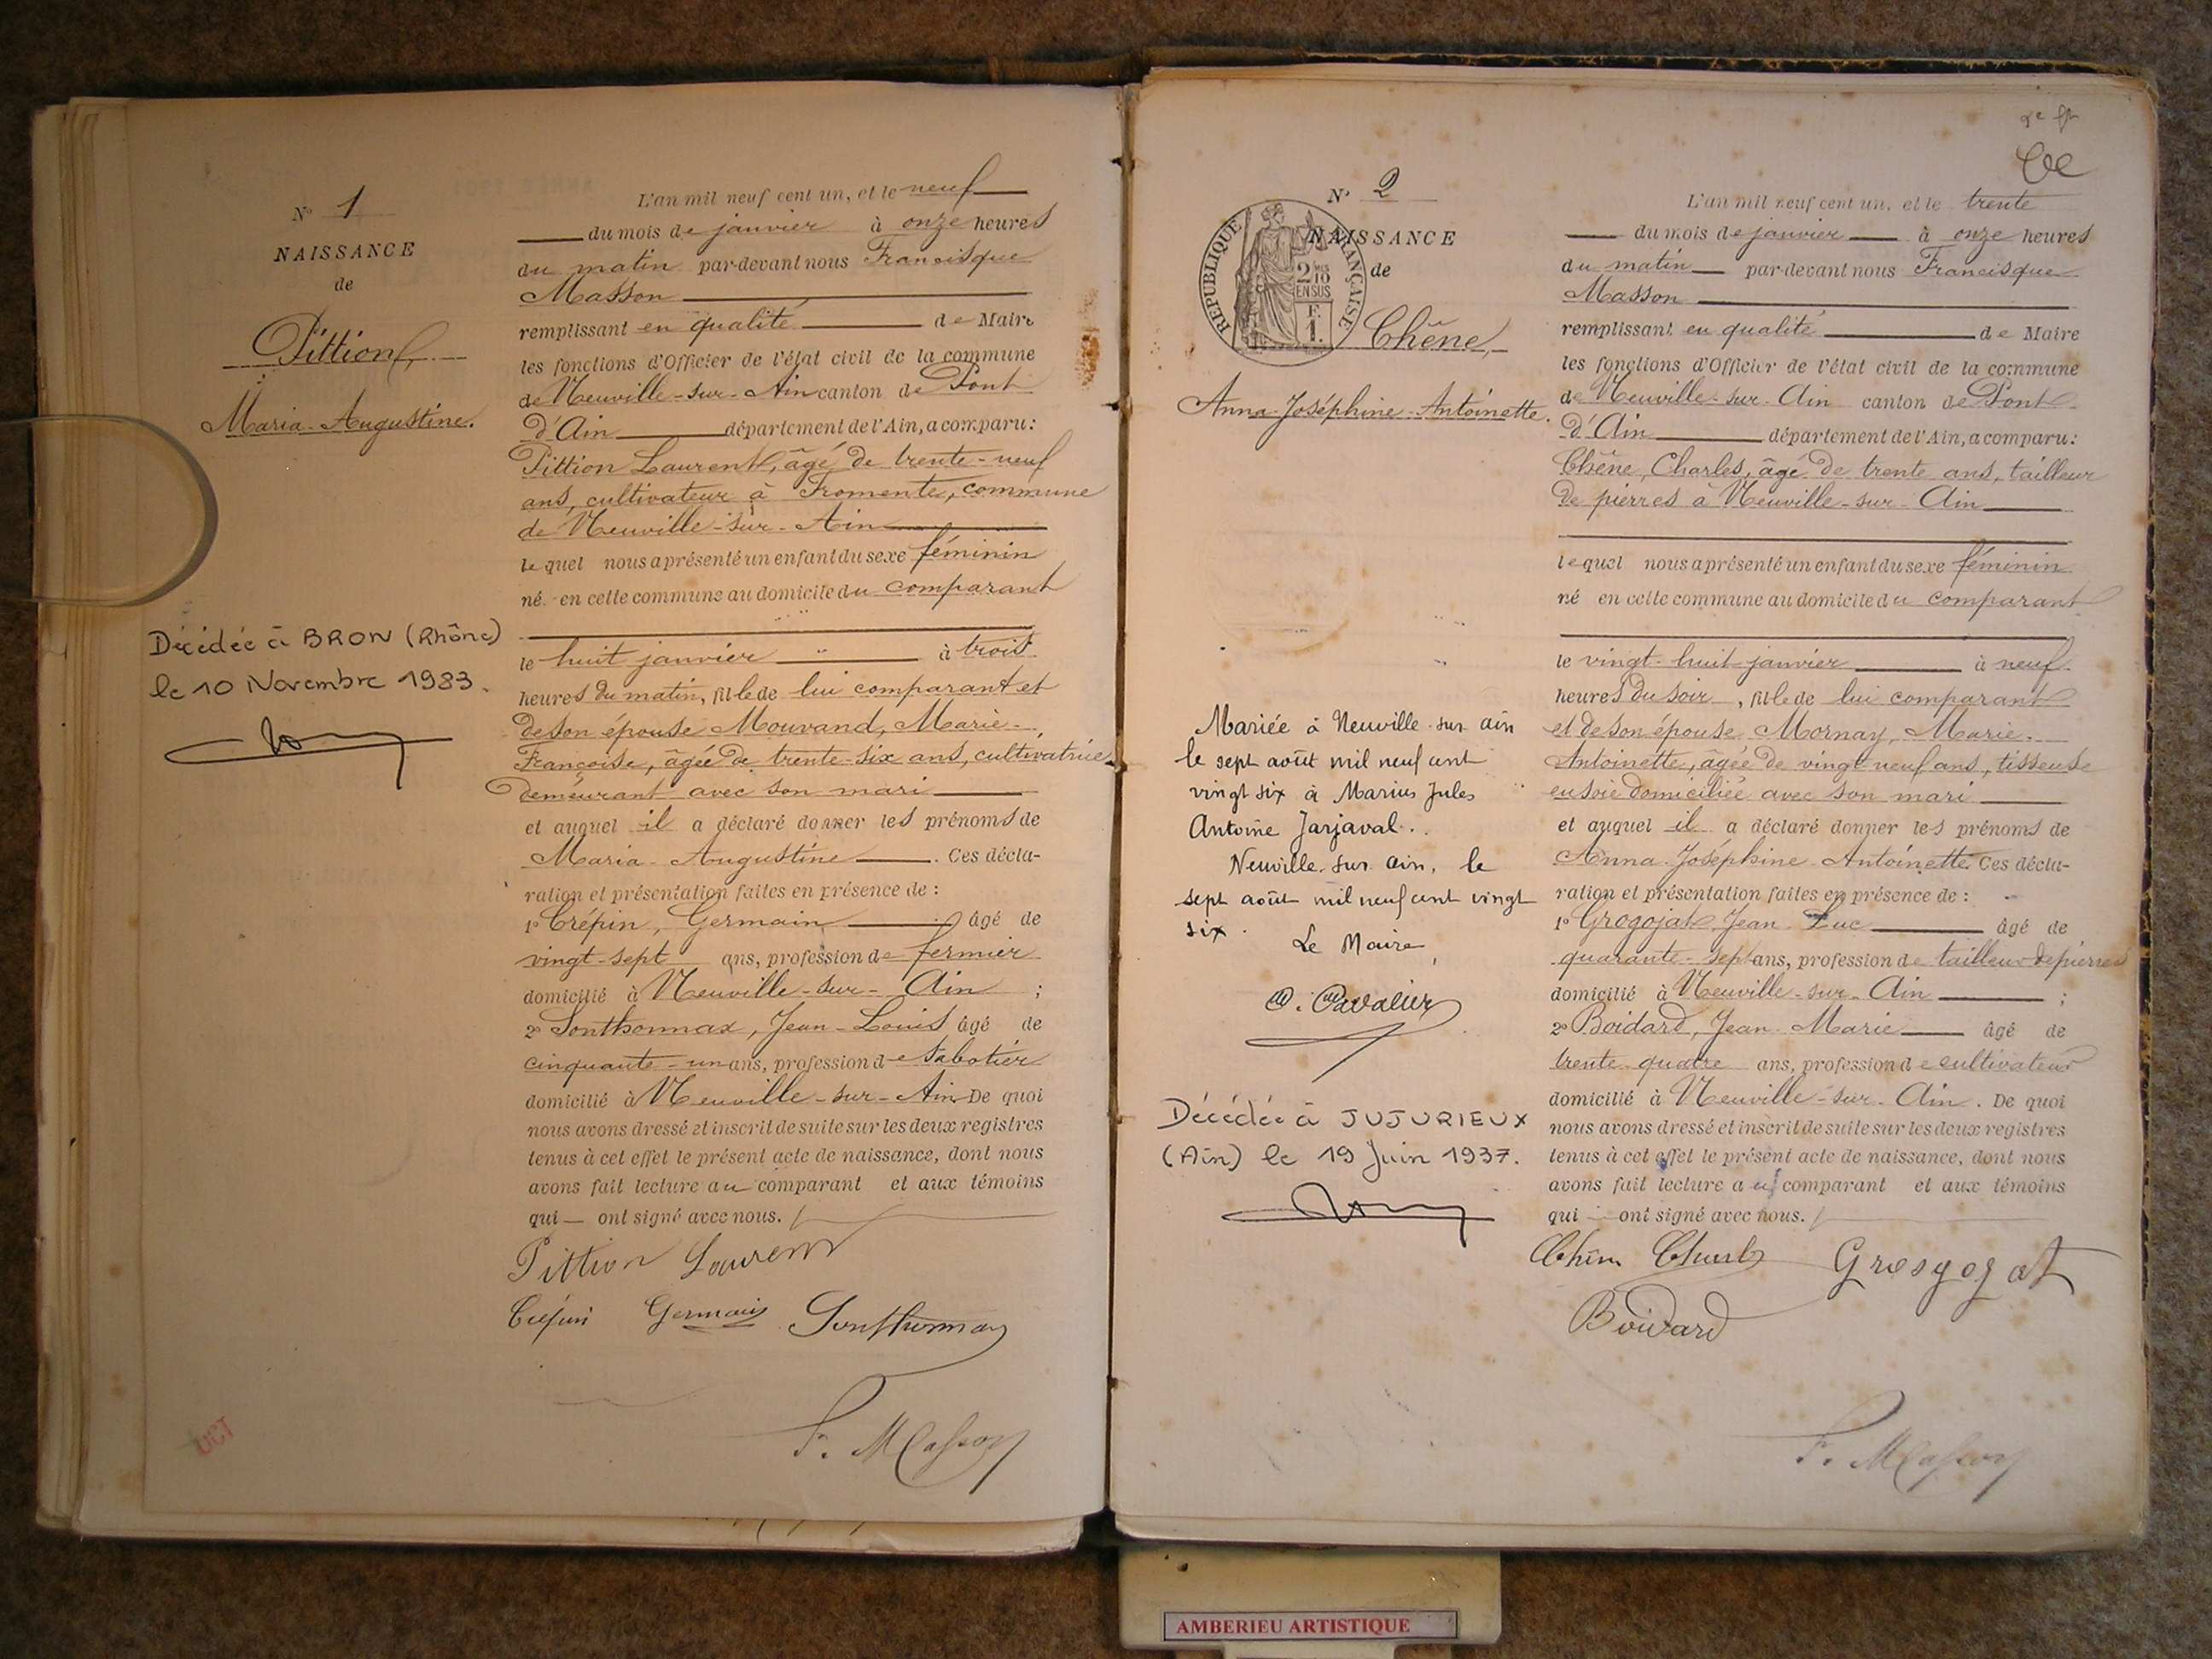 N° 1
NAISSANCE
de
Pittion
Maria-Augustine.
Décédée à BRON (Rhône)
le 10 Novembre 1983.
L'an mil neuf cent un, et le neuf
du mois de janvier à onze heures
du matin par-devant nous Francisque
Masson
remplissant en qualité de Maire
les fonctions d'Officier de l'état civil de la commune
de Neuville-sur-Ain canton de Pont
d'Ain département de l'Ain, a comparu:
Pittion Laurent, âgé de trente-neuf
ans, cultivateur à Fromente, commune
de Neuville-sur-Ain
lequel nous a présenté un enfant du sexe féminin
né en cette commune au domicile du comparant
le huit janvier à trois
heures du matin, fille de lui comparant et
de son épouse Mouvand, Marie-
Françoise, âgée de trente-six ans, cultivatrice
demeurant avec son mari
et auquel il a déclaré donner les prénoms de
Maria-Augustine. Ces décla-
ration et présentation faites en présence de :
1° Crépin, Germain âgé de
vingt-sept ans, profession de fermier
domicilié à Neuville-sur-Ain ;
2° Sonthonnax, Jean-Louis âgé de
cinquante-un ans, profession de sabotier
domicilié à Neuville-sur-Ain De quoi
nous avons dressé et inscrit de suite sur les deux registres
tenus à cet effet le présent acte de naissance, dont nous
avons fait lecture au comparant et aux témoins
qui — ont signé avec nous.
Pittion Laurent
Crépin Germain Sonthonnax
F. Masson
N° 2
NAISSANCE
de
RÉPUBLIQUE FRANÇAISE
2/10
EN SUS
F.
1.
Chêne,
Anna-Joséphine-Antoinette.
Mariée à Neuville-sur-ain
le sept août mil neuf cent
vingt six à Marius Jules
Antoine Jarjaval.
Neuville-sur-ain, le
sept août mil neuf cent vingt
six.
Le Maire,
Décédée à JUJURIEUX
(Ain) le 19 Juin 1937.
L'an mil neuf cent un, et le trente
du mois de janvier à onze heures
du matin par-devant nous Francisque
Masson
remplissant en qualité de Maire
les fonctions d'Officier de l'état civil de la commune
de Neuville-sur-Ain canton de Pont
d'Ain département de l'Ain, a comparu:
Chêne, Charles, âgé de trente ans, tailleur
de pierres à Neuville-sur-Ain
lequel nous a présenté un enfant du sexe féminin
né en cette commune au domicile du comparant
le vingt-huit janvier à neuf
heures du soir, fille de lui comparant
et de son épouse Mornay, Marie-
Antoinette, âgée de vingt-neuf ans, tisseuse
en soie domiciliée avec son mari
et auquel il a déclaré donner les prénoms de
Anna-Joséphine-Antoinette. Ces décla-
ration et présentation faites en présence de :
1° Grogojat Jean-Luc âgé de
quarante-sept ans, profession de tailleur de pierres
domicilié à Neuville-sur-Ain ;
2° Boidard, Jean-Marie âgé de
trente-quatre ans, profession de cultivateur
domicilié à Neuville-sur-Ain. De quoi
nous avons dressé et inscrit de suite sur les deux registres
tenus à cet effet le présent acte de naissance, dont nous
avons fait lecture au comparant et aux témoins
qui — ont signé avec nous.
Chêne Charles Grosgogat
Boidard
F. Masson
AMBERIEU ARTISTIQUE